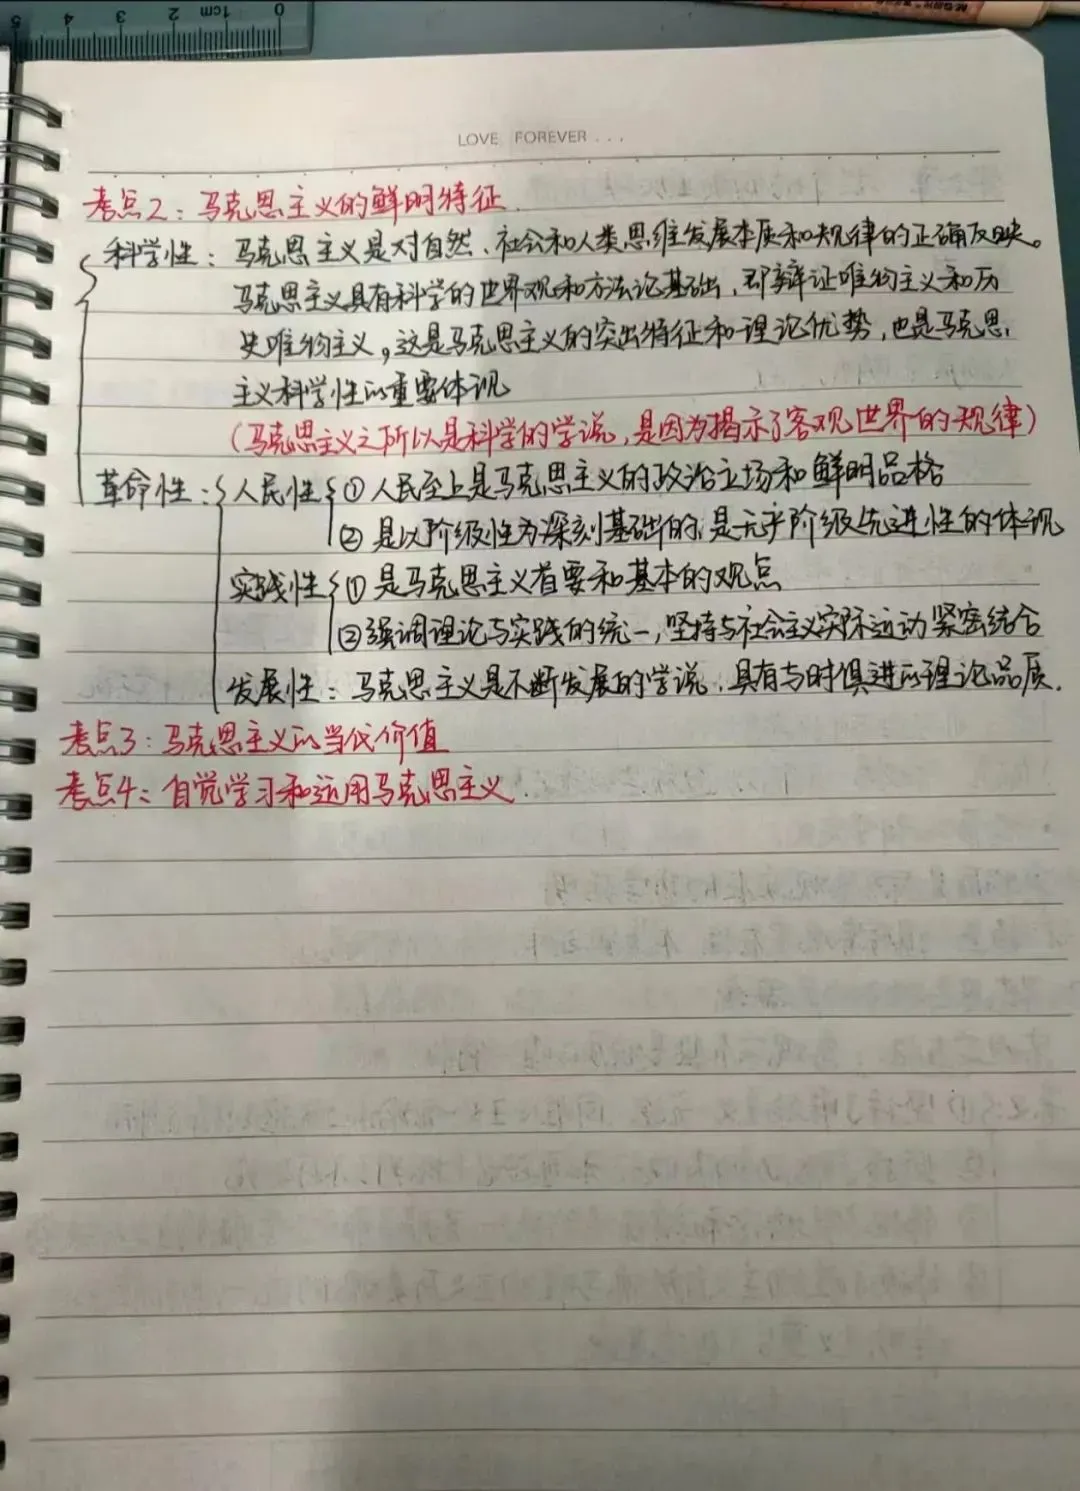 0 1cm 2 3 4 5
LOVE FOREVER ...
考点2：马克思主义的鲜明特征
科学性：马克思主义是对自然、社会和人类思维发展本质和规律的正确反映。
马克思主义具有科学的世界观和方法论基础，即辩证唯物主义和历
史唯物主义，这是马克思主义的突出特征和理论优势，也是马克思
主义科学性的重要体现
（马克思主义之所以是科学的学说，是因为揭示了客观世界的规律）
革命性：人民性 ① 人民至上是马克思主义的政治立场和鲜明品格
② 是以阶级性为深刻基础的，是无产阶级先进性的体现
实践性 ① 是马克思主义首要和基本的观点
② 强调理论与实践的统一，坚持与社会主义实际运动紧密结合
发展性：马克思主义是不断发展的学说，具有与时俱进的理论品质.
考点3：马克思主义的当代价值
考点4：自觉学习和运用马克思主义